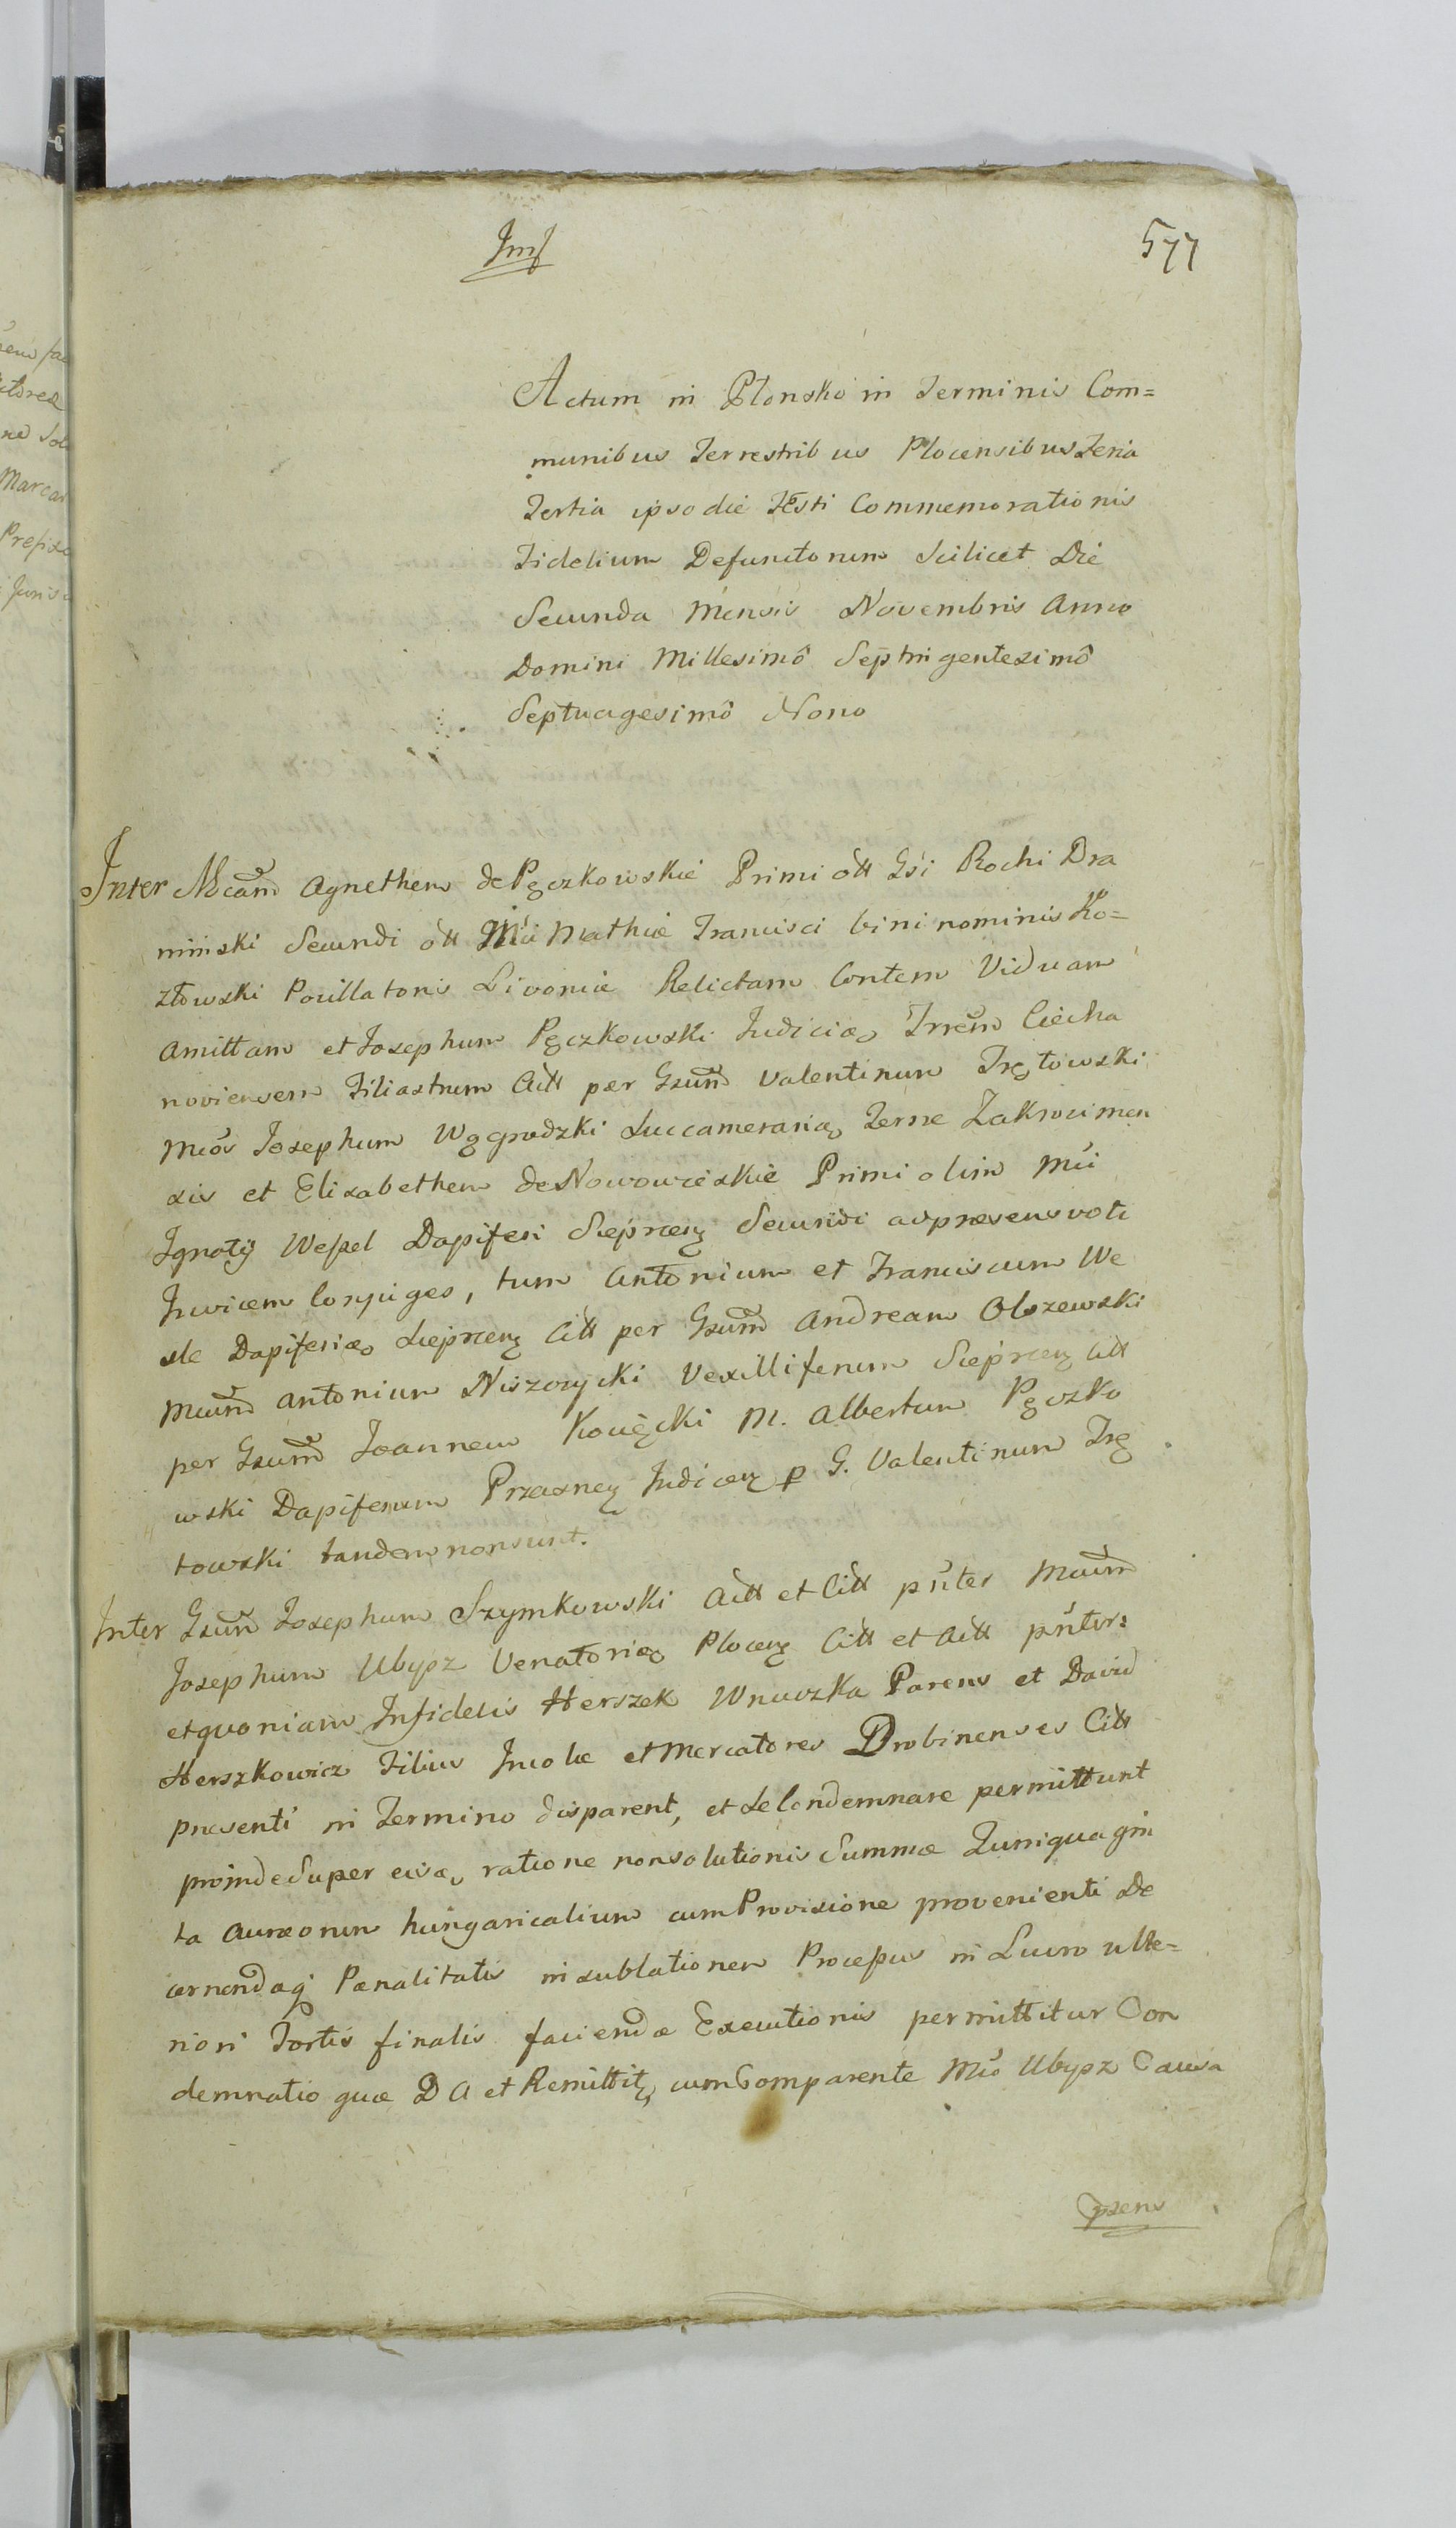 577
Actum in Płonsko in Terminis Com=
munibus Terrestribus Plocensibus Feria
Tertia ipso die Festi Commemorationis
Fidelium Defunctorum Scilicet Die
Secunda Mensis Novembris Anno
Domini Millesimô Septingentesimô
Septuagesimô Nono
Inter Mcam Agnethem de Pęczkowskie Primi ott Gsi Rochi Dra
minski Secundi ott Mci Mathiæ Francisci bini nominis Ko=
złowski Pocillatoris Livoniæ Relictam Contem Viduam
Amittam et Josephum Pęczkowski Judicią Trrem Ciecha
noviensem Filiastrum Actt per Gsum Valentinum Trętowski
Mcos Josephum Węgrodzki Succamerarią Terræ Zakrocimen
sis et Elisabethem de Nowowieskie Primi olim Mci
Ignatij Wessel Dapiferi Sieprcen Secundi ad præsens voti
Invicem Conjuges, tum Antonium et Franciscum We
sle Dapiferią Sieprcen Citt per Gsum Andream Olszewski
Mcum Antonium Niszczycki Vexilliferum Sieprcen Citt
per Gsum Joannem Kocięcki M. Albertum Pęczko
wski Dapiferum Przasney Judicen p G. Valentinum Trę
towski tandem non sunt.
Inter Gsum Josephum Szymkowski Actt et Citt pnter Mcum
Josephum Ubysz Venatorią Plocen Citt et Actt pnter:
et quoniam Infidelis Herszek Wnuczka Parens et David
Herszkowicz Filius Incolæ et Mercatores Drobinenses Citt
presenti in Termino disparent, et se Condemnare permittunt
proinde Super eisą ratione non solutionis Summæ Quinquagin
ta Aureorum hungaricalium cum Provisione provenienti De
cernendaq Pænalitatis in sublationem Processus in Lucro ulte=
riori Fortis finalis faciendæ Executionis permittitur Con
demnatio quæ D A et Remittitą cum Comparente Mco Ubysz Causa